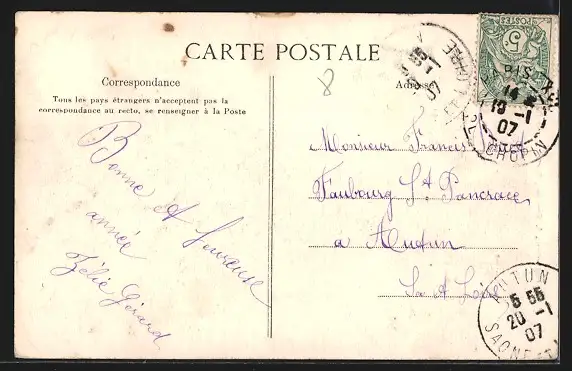 CARTE POSTALE
Correspondance
Tous les pays étrangers n'acceptent pas la
correspondance au recto, se renseigner à la Poste
Bonne et heureuse
année
Zélie Gérard
8
Adresse
Monsieur Francis
Faubourg St Pancrace
a Autun
S. et Loire
POSTES
5
PARIS XX
18 -1
07
R. CHOPIN
07
AUTUN
5 55
20 -1
07
SAONE